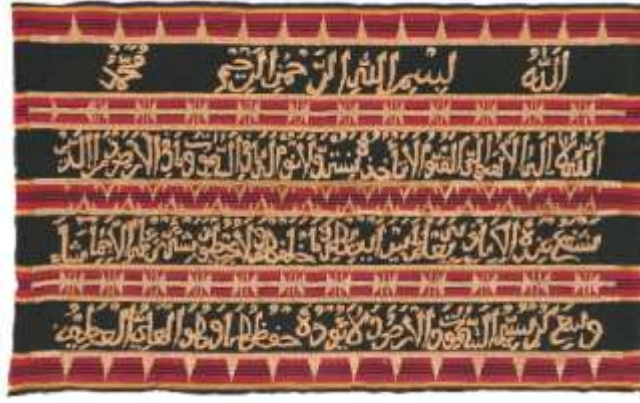 الله بسم الله الرحمن الرحيم محمد
الله لا اله الا هو الحي القيوم لا تاخذه سنة ولا نوم له ما في السموت وما في الارض من ذا الذي
يشفع عنده الا باذنه يعلم ما بين ايديهم وما خلفهم ولا يحيطون بشئ من علمه الا بما شاء
وسع كرسيه السموت والارض ولا يؤده حفظهما وهو العلي العظيم